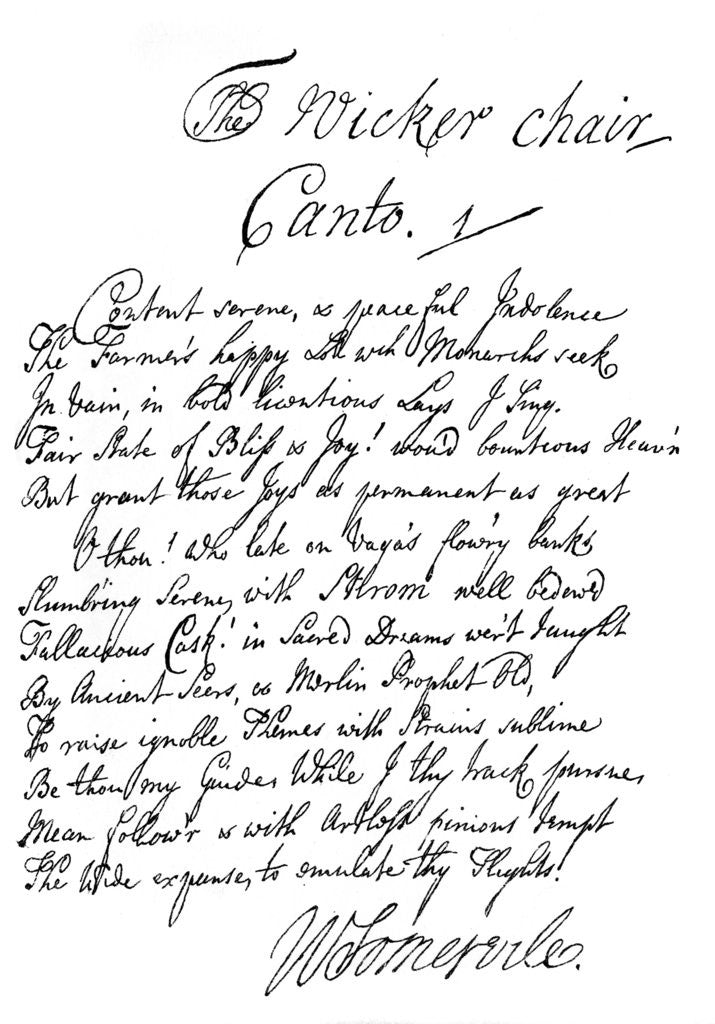 The Wicker chair
Canto. 1
Content serene, & peaceful Indolence
The Farmer's happy Lot wch Monarchs seek
In Vain, in bold licentious Lays I Sing.
Fair State of Bliss & Joy! wou'd bountious Heav'n
But grant those Joys as permanent as great
O thou! who late on Vaga's flow'ry banks
Slumb'ring Serene, with Stirom well bedew'd
Fallacious Cask! in Sacred Dreams wer't taught
By Ancient Seers, & Merlin Prophet Old,
To raise ignoble Themes with Strains sublime
Be thou my Guide, While I thy track pursue,
Mean follow'r & with Artless pinions tempt
The Wide expanse, to emulate thy Flights.
WSomervile.